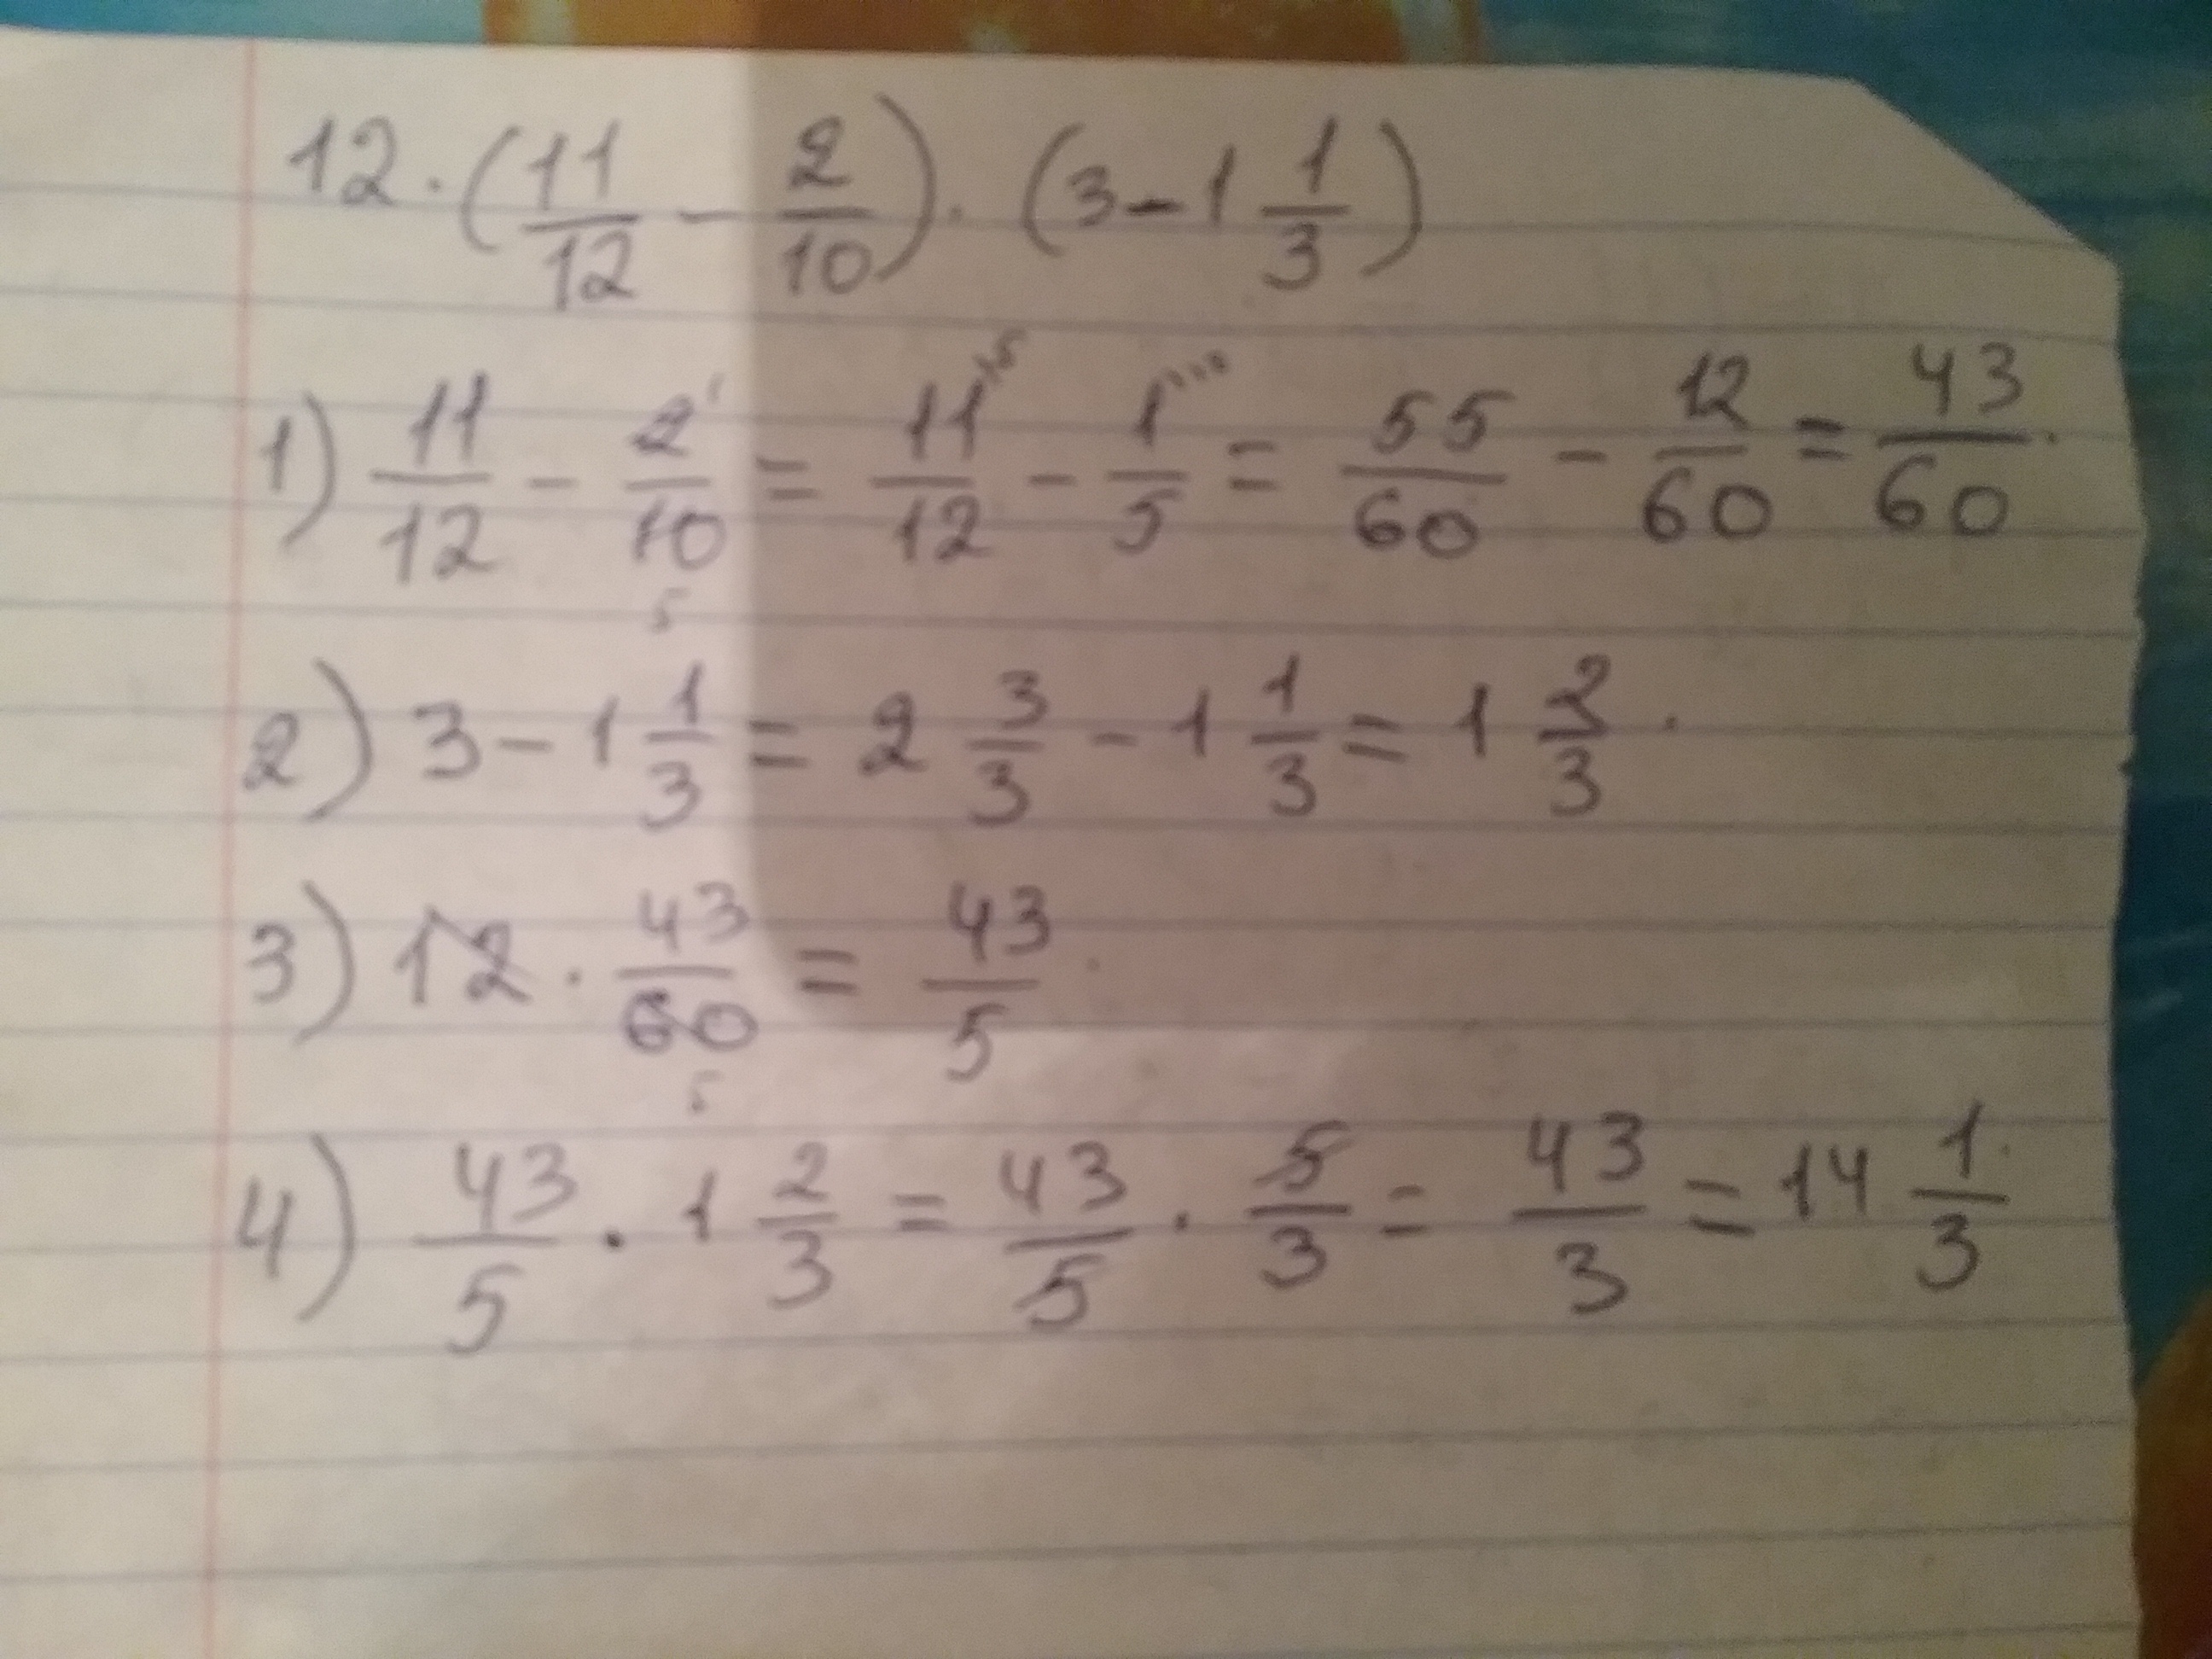 12 · (11/12 - 2/10) · (3 - 1 1/3)
1) 11/12 - 2/10 = 11/12 - 1/5 = 55/60 - 12/60 = 43/60.
2) 3 - 1 1/3 = 2 3/3 - 1 1/3 = 1 2/3.
3) 12 · 43/60 = 43/5.
4) 43/5 · 1 2/3 = 43/5 · 5/3 = 43/3 = 14 1/3.